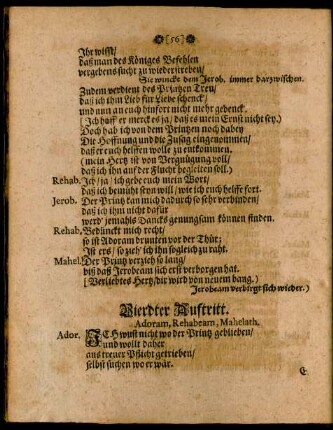 [56]
Ihr wißt/
daß man des Königes Befehlen
vergebens sucht zu wiederstreben/
Sie wincke dem Jerob. immer darzwischen.
Zudem verdient des Printzen Treu/
daß ich ihm Lieb für Liebe schenck/
und nun an euch hinfort nicht mehr gedenck.
(Ich hoff' er merck es ja/ daß es mein Ernst nicht sey.)
Doch hab ich von dem Printzen noch dabey
Die Hoffnung und die Zusag eingenommen/
daß er euch helffen wolle zu entkommen.
(mein Hertz ist von Vergnügung voll/
daß ich ihn auf der Flucht begleiten soll.)
Rehab. Ich/ ja/ ich gebe euch mein Wort/
daß ich bemüht seyn will/ wie ich euch helffe fort.
Jerob. Der Printz kan mich dadurch so sehr verbinden/
daß ich ihm nicht dafür
werd' jemahls Dancks genungsam können finden.
Rehab. Bedünckt mich recht/
so ist Adoram drunten vor der Thür;
Ist ers/ so zieh' ich ihn sogleich zu raht.
Mahel. Der Printz verzieh so lang/
biß daß Jerobeam sich erst verborgen hat.
(Verliebtes Hertz/ dir wird von neuem bang.)
Jerobeam verbirgt sich wieder.)
Vierdter Auftritt.
Adoram, Rehabeam, Mahelath.
Ador. ICH wust nicht wo der Printz geblieben/
und wollt daher
aus treuer Pflicht getrieben/
selbst suchen wo er wär.